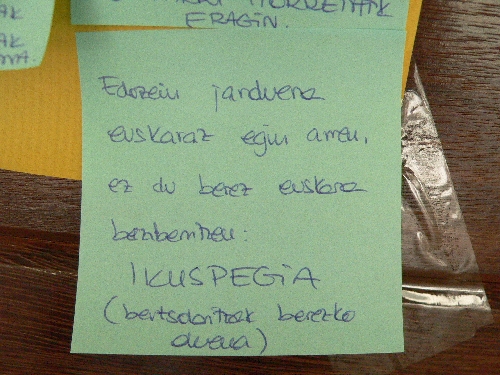 AK
AK
MA.
ERAGIN.
Edozein jarduera
euskaraz egin arren,
ez du berez euskara
bezibenitzen:
IKUSPEGIA
(bertsolaritzak berezko
duena)